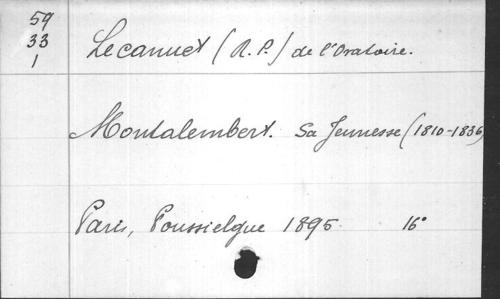 59
33
1
Lecanuet (R. P.) de l'Oratoire.
Montalembert. Sa Jeunesse (1810-1836)
Paris, Poussielgue 1895. 16°